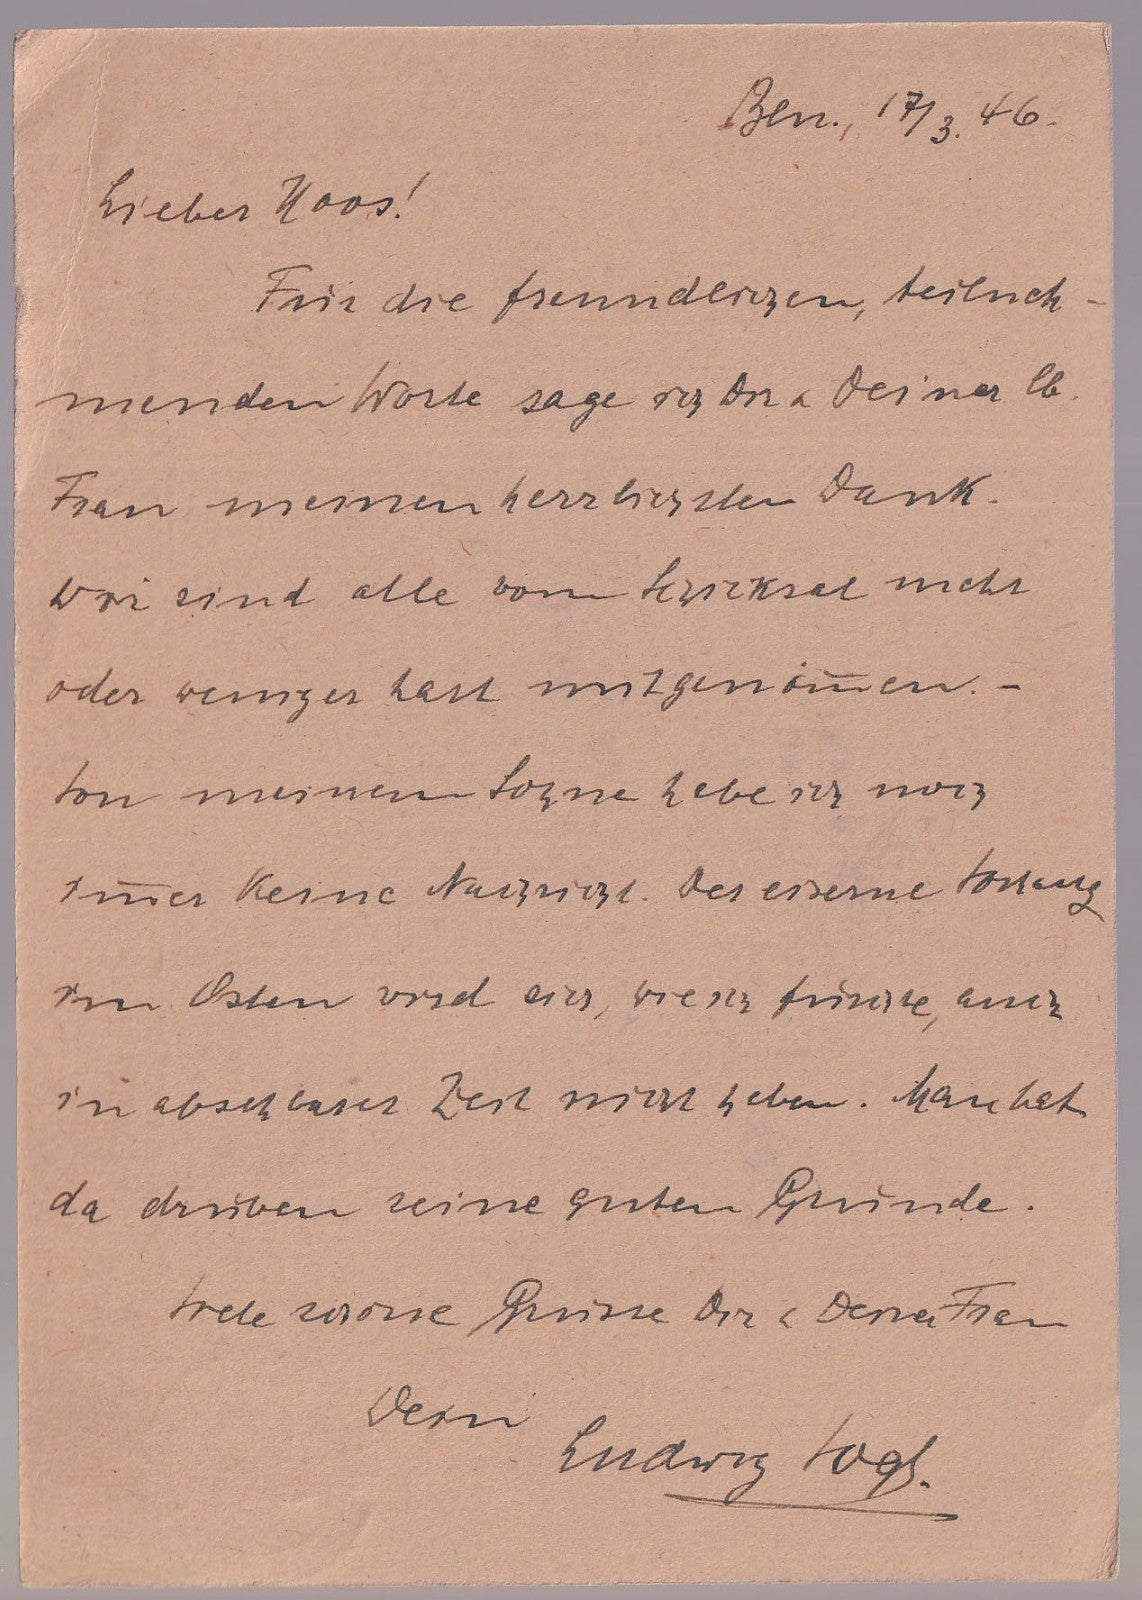 Ben., 17/3. 46.
Lieber Koos!
Für die freundlichen, teilneh-
menden Worte sage ich Dir & Deiner lb.
Frau meinen herzlichsten Dank.
Wir sind alle vom Schicksal mehr
oder weniger hart mitgenom̅en. –
Von meinem Sohne habe ich noch
im̅er keine Nachricht. Der eiserne Vorhang
im Osten wird sich, wie ich fürchte, auch
in absehbarer Zeit nicht heben. Man hat
da drüben seine guten Gründe.
Viele schöne Grüsse Dir & Deiner Frau
Dein
Ludwig Vogl.